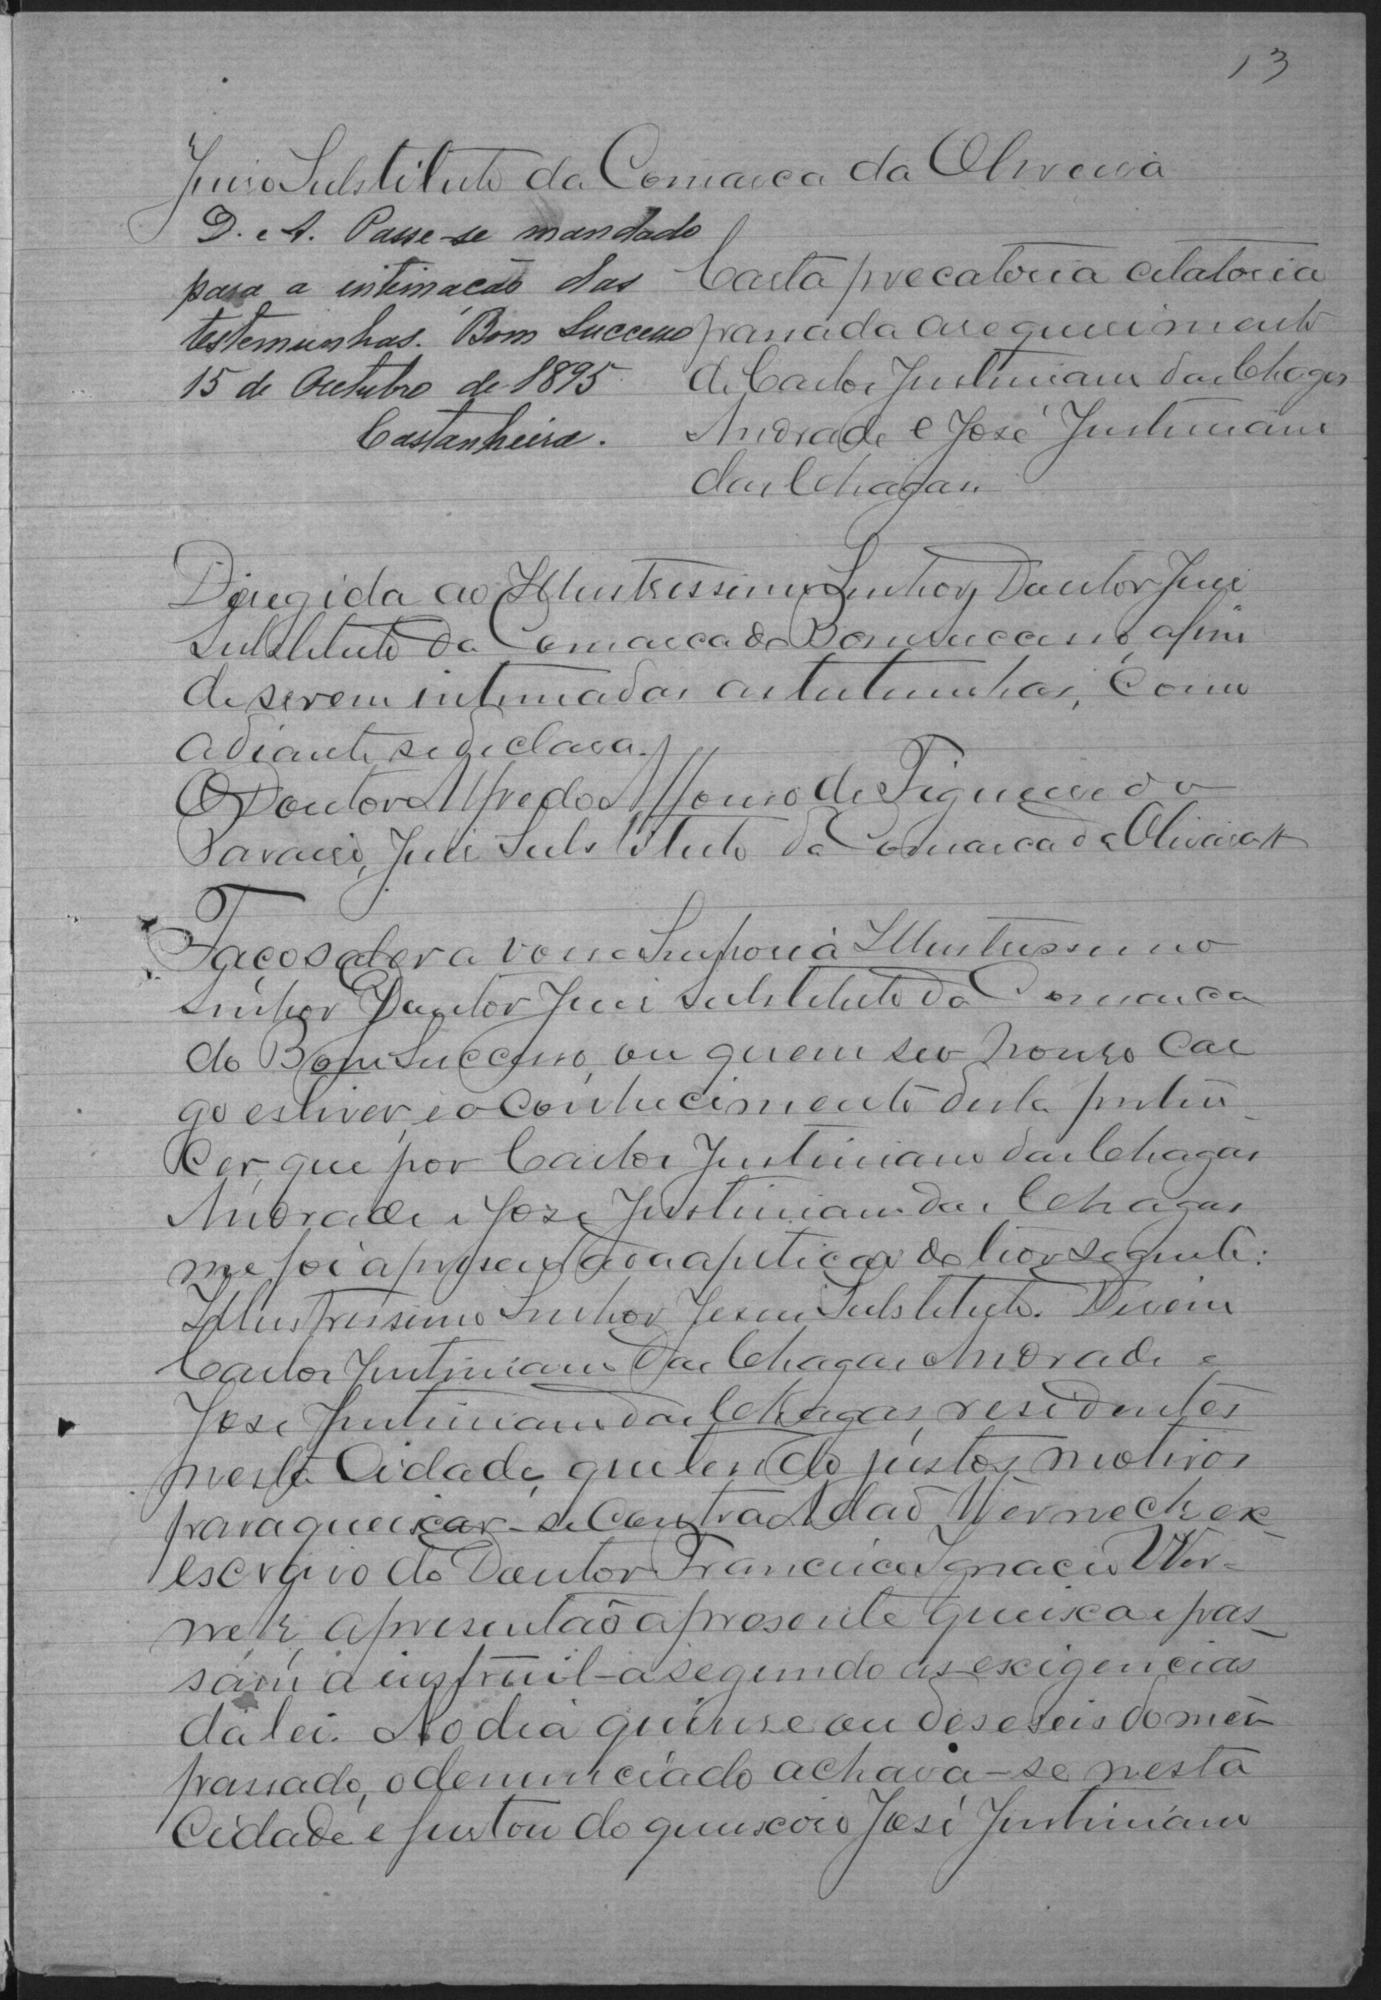 13
Juiso Substituto da Comarca da Oliveira
D. e A. Passe-se mandado
para a intimação das
testemunhas. Bom Successo
15 de Outubro de 1895
Castanheira.
Carta precatoria citatoria
passada a requerimento
de Carlos Justiniano das Chagas
Andrade e José Justiniano
das Chagas.
Dirigida ao Illustrissimo Senhor Doutor Juiz
Substituto da Comarca do Bom Successo, afim
de serem intimadas as testemunhas, como
adiante se declara.
O Doutor Alfredo Affonso de Figueiredo
Paraiso, Juiz Substituto da Comarca da Oliveira
Faço saber a vossa Senhoria Illustrissimo
Senhor Doutor Juiz Substituto da Comarca
do Bom Successo, ou quem seo honroso car
go estiver, e o conhecimento desta perten
cer, que por Carlos Justiniano das Chagas
Andrade e José Justiniano das Chagas
me foi apresentado a petição do teor seguinte:
Illustrissimo Senhor Juiz Substituto. Dizem
Carlos Justiniano das Chagas Andrade e
José Justiniano das Chagas, residentes
nesta Cidade, que tendo justos motivos
para queixar-se contra Adão Werneck ex-
escravo do Doutor Francisco Ignacio Wer-
nek, apresentão a presente queixa e pas-
sam a instruil-a segundo as exigencias
da lei. No dia quinse ou deseseis do mez
passado, o denunciado achava-se nesta
Cidade e furtou do queixoso José Justiniano